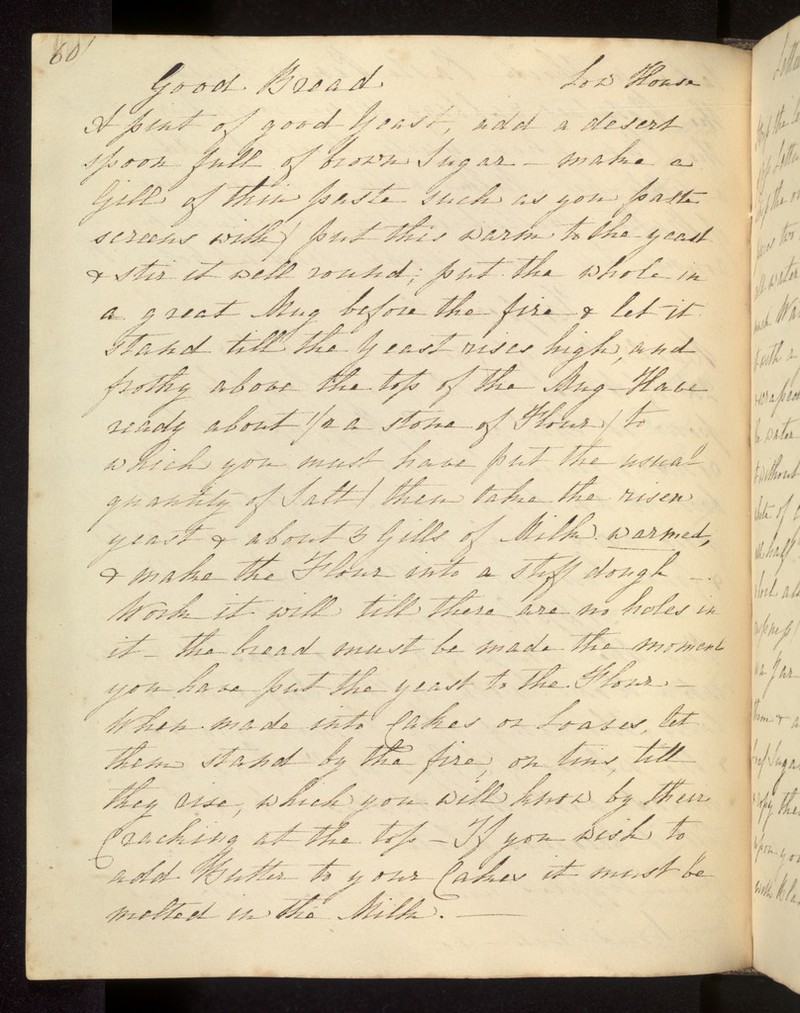 60
Good Bread Low House
A pint of good Yeast, add a desert
spoon full of brown Sugar - make a
Gill of thin paste such as you paste
screens with) put this warm to the yeast
& stir it well round; put the whole in
a great Mug before the fire & let it
stand till the Yeast rises high, and
frothy above the top of the Mug - Have
ready about 1/2 a stone of Flour / to
which you must have put the usual
quantity of Salt / then take the risen
yeast & about 3 Gills of Milk warmed,
& make the Flour into a stiff dough -
Work it well till there are no holes in
it - the bread must be made the moment
you have put the yeast to the Flour -
When made into Cakes or Loaves, let
them stand by the fire, on tins, till
they rise, which you will know by their
Cracking at the top - If you wish to
add Butter to your Cakes it must be
melted in the Milk. -